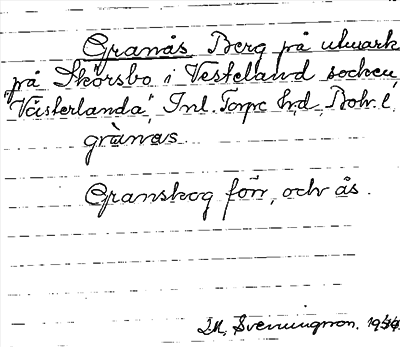 Granås Berg på utmark
på Skörsbo i Vesteland socken
"Västerlanda", Inl. Torpe hd, Boh. l.
grànas
Granskog förr, och ås.
M. Svenningson. 19